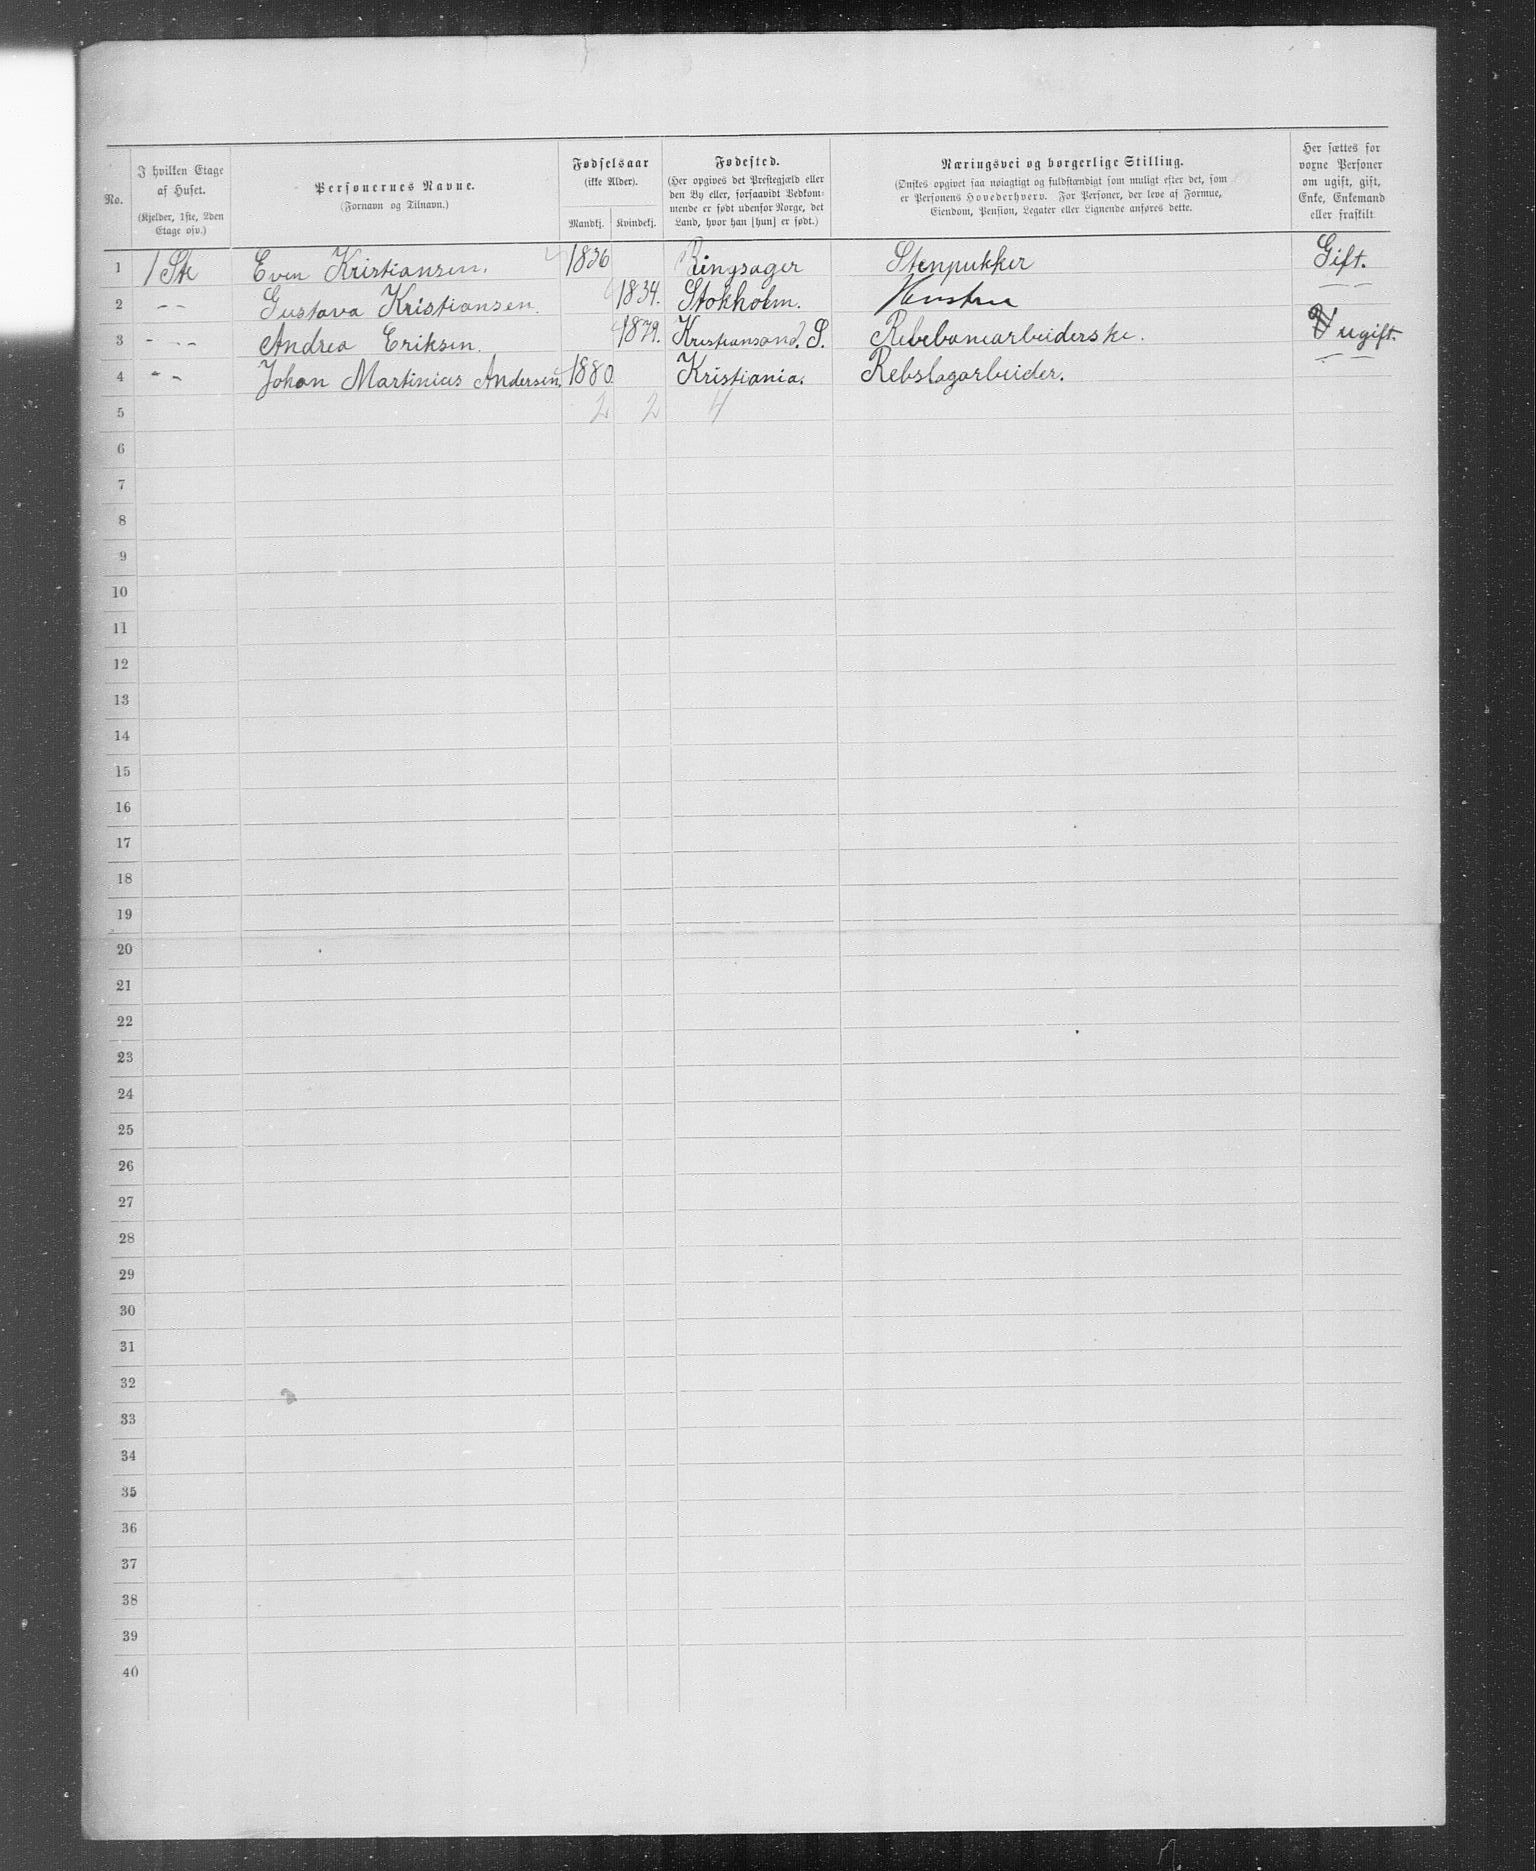 No.
I hvilken Etage
af Huset.
(Kjelder, 1ste, 2den
Etage osv.)
Personernes Navne.
(Fornavn og Tilnavn.)
Fødselsaar
(ikke Alder).
Mandkj. Kvindekj.
Fødested.
(Her opgives det Prestegjæld eller
den By eller, forsaavidt Vedkom-
mende er født udenfor Norge, det
Land, hvor han [hun] er født.)
Næringsvei og borgerlige Stilling.
(Ønskes opgivet saa nøiagtigt og fuldstændigt som muligt efter det, som
er Personens Hovederhverv. For Personer, der leve af Formue,
Eiendom, Pension, Legater eller Lignende anføres dette.
Her sættes for
voxne Personer
om ugift, gift,
Enke, Enkemand
eller fraskilt
1 1 Ste Even Kristiansen. 1836 Ringsager Stenpukker Gift.
2 - - Gustava Kristiansen. 1834. Stokholm. Hustru - -
3 - - - Andrea Eriksen. 1879. Kristiansand. S. Rebebanearbeiderske. ugift.
4 - - Johan Martinius Andersen. 1880 Kristiania. Rebslagarbeider. - -
5 2 2 4
6
7
8
9
10
11
12
13
14
15
16
17
18
19
20
21
22
23
24
25
26
27
28
29
30
31
32
33
34
35
36
37
38
39
40